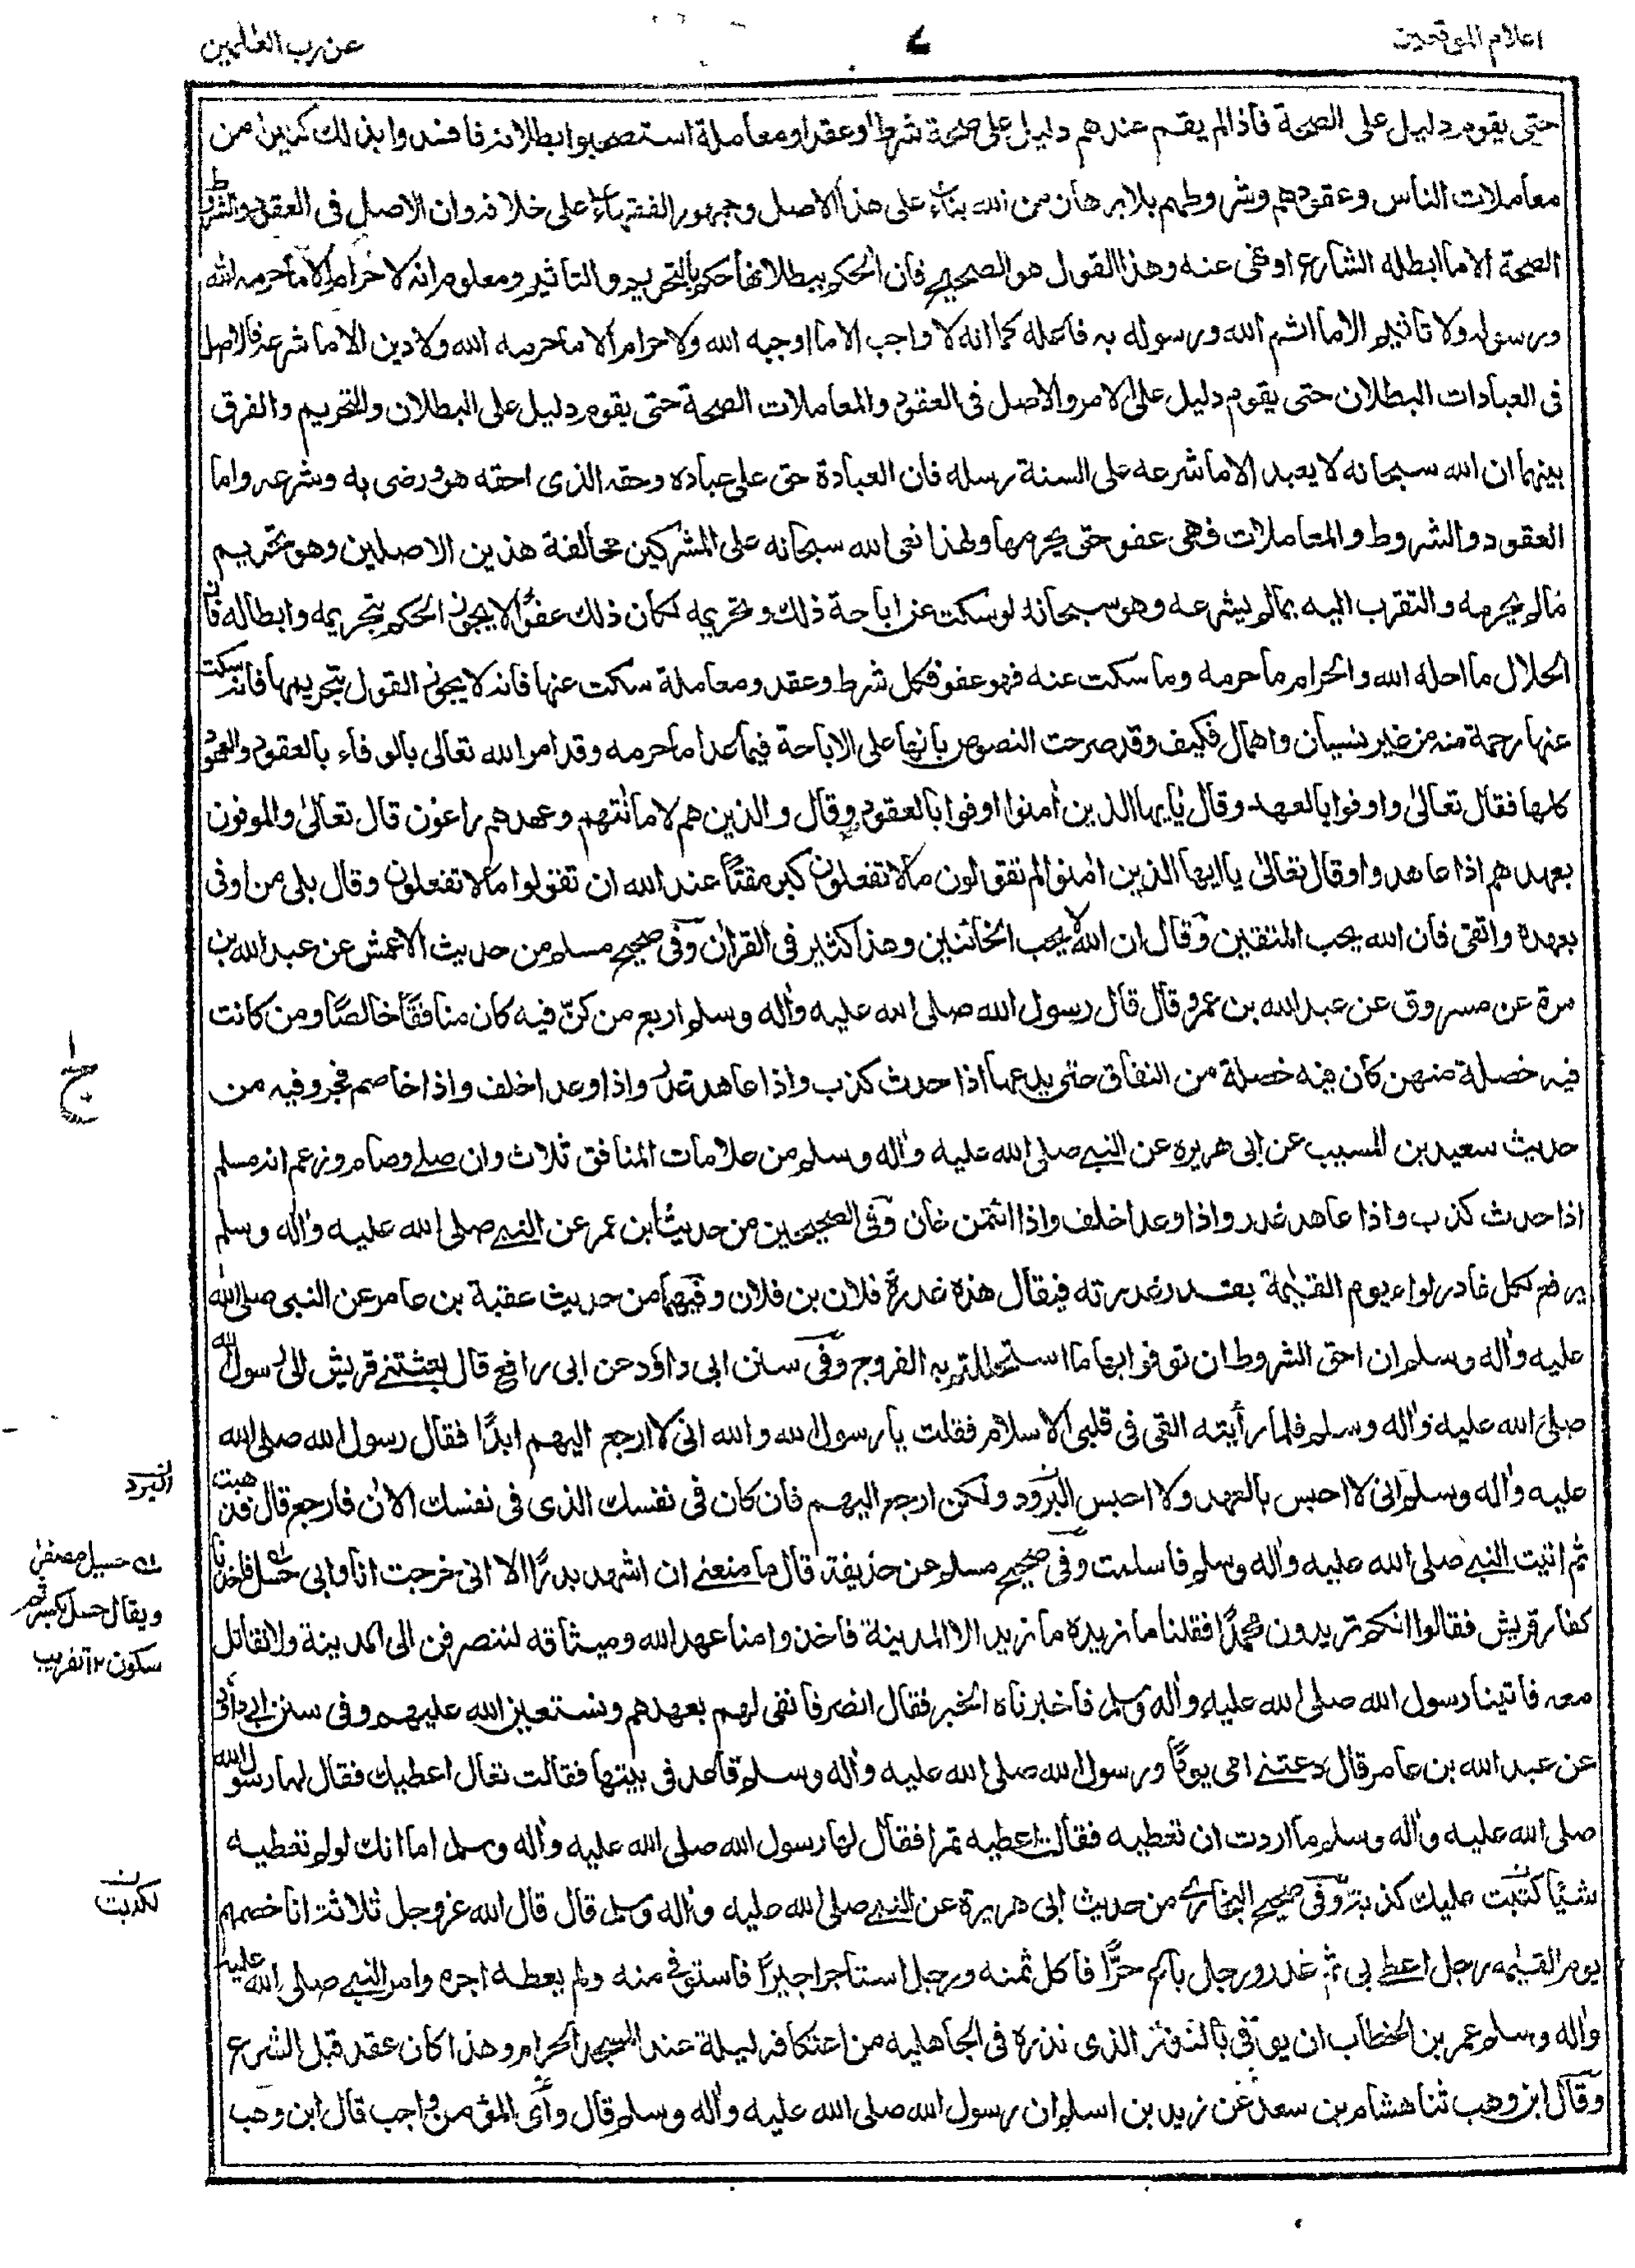 اعلام الموقعين
٧
عن رب العلمين
حتى يقوم دليل على الصحة فاذا لم يقم عندهم دليل على صحة شرط او عقد او معاملة استصحبوا بطلانه فافسدوا بذلك كثيرا من
معاملات الناس وعقودهم وشروطهم بلا برهان من الله بناءً على هذا الاصل وجمهور الفقهاء على خلافه وان الاصل فى العقود والشروط
الصحة الا ما ابطله الشارع او نهى عنه وهذا القول هو الصحيح فان الحكم ببطلانها حكم بالتحريم والتاثيم ومعلوم انه لا حرام الا ما حرمه الله
ورسوله ولا تاثيم الا ما اثم الله ورسوله به فاعله كما انه لا واجب الا ما اوجبه الله ولا حرام الا ما حرمه الله ولا دين الا ما شرعه فالاصل
فى العبادات البطلان حتى يقوم دليل على الامر والاصل فى العقود والمعاملات الصحة حتى يقوم دليل على البطلان والتحريم والفرق
بينهما ان الله سبحانه لا يعبد الا ما شرعه على السنة رسله فان العبادة حق على عباده وحقه الذى احقه هو ورضى به وشرعه واما
العقود والشروط والمعاملات فهى عفو حتى يحرمها ولهذا نعى الله سبحانه على المشركين مخالفة هذين الاصلين وهو تحريم
مالم يحرمه والتقرب اليه بمالم يشرعه وهو سبحانه لو سكت عن اباحة ذلك وتحريمه لكان ذلك عفوًا لا يجوز الحكم بتحريمه وابطاله فان
الحلال ما احله الله والحرام ما حرمه وما سكت عنه فهو عفو فكل شرط وعقد ومعاملة سكت عنها فانه لا يجوز القول بتحريمها فانه سكت
عنها رحمة منه من غير نسيان واهمال فكيف وقد صرحت النصوص بانها على الاباحة فيما عدا ما حرمه وقد امر الله تعالى بالوفاء بالعقود والعهود
كلها فقال تعالىٰ واوفوا بالعهد وقال يٰايها الذين اٰمنوا اوفوا بالعقود وقال والذين هم لاماناتهم وعهدهم راعون قال تعالىٰ والموفون
بعهدهم اذا عاهدوا وقال تعالىٰ يا ايها الذين اٰمنوا لم تقولون مالا تفعلون كبر مقتًا عند الله ان تقولوا مالا تفعلون وقال بلى من اوفى
بعهده واتقى فان الله يحب المتقين وقال ان الله لا يحب الخائنين وهذا كثير فى القراٰن وفى صحيح مسلم من حديث الاعمش عن عبد الله بن
مرة عن مسروق عن عبد الله بن عمرو قال قال رسول الله صلى الله عليه واٰله وسلم اربع من كنّ فيه كان منافقًا خالصًا ومن كانت
فيه خصلة منهن كان فيه خصلة من النفاق حتى يدعها اذا حدث كذب واذا عاهد غدر واذا وعد اخلف واذا خاصم فجر وفيه من
حديث سعيد بن المسيب عن ابى هريرة عن النبى صلى الله عليه واٰله وسلم من علامات المنافق ثلاث وان صلى وصام وزعم انه مسلم
اذا حدث كذب واذا عاهد غدر واذا وعد اخلف واذا ائتمن خان وفى الصحيحين من حديث ابن عمر عن النبى صلى الله عليه واٰله وسلم
يرفع لكل غادر لواء يوم القيٰمة بقدر غدرته فيقال هذه غدرة فلان بن فلان وفيهما من حديث عقبة بن عامر عن النبى صلى الله
عليه واٰله وسلم ان احق الشروط ان توفوا بها ما استحللتم به الفروج وفى سنن ابى داؤد عن ابى رافع قال بعثتنى قريش الى رسول الله
صلى الله عليه واٰله وسلم فلما رأيته القى فى قلبى الاسلام فقلت يا رسول الله والله انى لا ارجع اليهم ابدًا فقال رسول الله صلى الله
عليه واٰله وسلم انى لا احبس بالعهد ولا احبس البرود ولكن ارجع اليهم فان كان فى نفسك الذى فى نفسك الاٰن فارجع قال فذهبت
ثم اتيت النبى صلى الله عليه واٰله وسلم فاسلمت وفى صحيح مسلم عن حذيفة قال ما منعنى ان اشهد بدرًا الا انى خرجت انا وابى حسل فاخذنا
كفار قريش فقالوا انكم تريدون محمدًا فقلنا ما نريده ما نريد الا المدينة فاخذوا منا عهد الله وميثاقه لننصرفن الى المدينة ولا نقاتل
معه فاتينا رسول الله صلى الله عليه واٰله وسلم فاخبرناه الخبر فقال انصرفا نفى لهم بعهدهم ونستعين الله عليهم وفى سنن ابى داؤد
عن عبد الله بن عامر قال دعتنى امى يومًا ورسول الله صلى الله عليه واٰله وسلم قاعد فى بيتها فقالت تعال اعطيك فقال لها رسول الله
صلى الله عليه واٰله وسلم ما اردت ان تعطيه فقالت اعطيه تمرا فقال لها رسول الله صلى الله عليه واٰله وسلم اما انك لو لم تعطيه
شيئًا كتبت عليك كذبة وفى صحيح البخارى من حديث ابى هريرة عن النبى صلى الله عليه واٰله وسلم قال قال الله عز وجل ثلاثة انا خصمهم
يوم القيٰمة رجل اعطى بى ثم غدر ورجل باع حرًّا فاكل ثمنه ورجل استاجر اجيرًا فاستوفى منه ولم يعطه اجره وامر النبى صلى الله عليه
واٰله وسلم عمر بن الخطاب ان يوفى بالنذر الذى نذره فى الجاهلية من اعتكافه ليلة عند المسجد الحرام وهذا كان عقد قبل الشرع
وقال ابن وهب ثنا هشام بن سعد عن زيد بن اسلم ان رسول الله صلى الله عليه واٰله وسلم قال وأى المؤمن واجب قال ابن وهب
البرد
حسيل مصغر
ويقال حسل بكسر ثم
سكون ١٢ تقريب
لكذبت